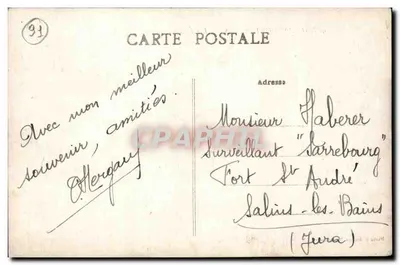 91
CARTE POSTALE
Adresse
Avec mon meilleur
souvenir, amitiés.
Monsieur Haberer
Surveillant "Sarrebourg"
Fort St André
Salins-les-Bains
(Jura)
CPAPHIL